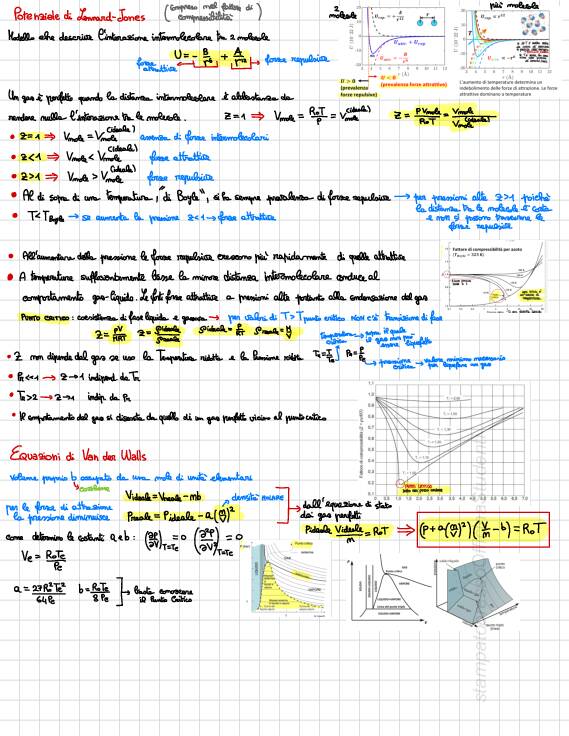 Potenziale di Lennard-Jones (compreso nel fattore di compressibilità)
Modello che descrive l'interazione intermolecolare fra 2 molecole
U = - B/r⁶ + A/r¹²
forze attrattive
forze repulsive
2 molecole
più molecole
U > 0 (prevalenza forze repulsive)
U < 0 (prevalenza forze attrattive)
L'aumento di temperatura determina un
indebolimento delle forze di attrazione. Le forze
attrattive dominano a temperature
Un gas è perfetto quando la distanza intermolecolare è abbastanza da
rendere nulla l'interazione tra le molecole. Z=1 ⇒ Vmole = R₀T/P = Vmole^(ideale)
Z = PVmole/R₀T = Vmole/Vmole^(ideale)
• Z=1 ⇒ Vmole = Vmole^(ideale) assenza di forze intermolecolari
• Z<1 ⇒ Vmole < Vmole^(ideale) forze attrattive
• Z>1 ⇒ Vmole > Vmole^(ideale) forze repulsive
• Al di sopra di una temperatura, "di Boyle", si ha sempre prevalenza di forze repulsive → per pressioni alte Z>1 poiché
la distanza tra le molecole è corta
e non si possono trascurare le
forze repulsive
• T<T Boyle → se aumenta la pressione Z<1 → forze attrattive
• All'aumentare della pressione le forze repulsive crescono più rapidamente di quelle attrattive
• A temperature sufficientemente basse la minore distanza intermolecolare conduce al
comportamento gas-liquido. Le forti forze attrattive a pressioni alte portano alla condensazione del gas
Fattore di compressibilità per azoto
(T Boyle = 323 K)
PUNTO CRITICO: coesistenza di fase liquida e gassosa → per valori di T > T punto critico non c'è transizione di fase
Z = PV/MRT Z = ρideale/ρreale ρideale = P/RT ρreale = M/V
• Z non dipende dal gas se uso la Temperatura ridotta e la Pressione ridotta Tr = T/Tc Pr = P/Pc
temperatura critica → sopra il quale il gas non può essere liquefatto
pressione critica → valore minimo necessario per liquefare un gas
• Pr<<1 → Z→1 indipend. da Tr
• Tr>2 → Z→1 indip. da Pr
• Il comportamento del gas si discosta da quello di un gas perfetto vicino al punto critico
Fattore di compressibilità (Z = pv/RT)
1,1
1,0
0,9
0,8
0,7
0,6
0,5
0,4
0,3
0,2
0,1
0 0,5 1,0 1,5 2,0 2,5 3,0 3,5 4,0 4,5 5,0 5,5 6,0 6,5 7,0
PUNTO CRITICO
Equazioni di Van der Walls
volume proprio b occupato da una mole di unità elementari
covolume
per le forze di attrazione
la pressione diminuisce
Videale = Vreale - mb
Preale = Pideale - a(m/V)²
densità molare
dall'equazione di stato
dei gas perfetti
Pideale Videale/m = R₀T ⇒ (p + a(m/V)²)(V/m - b) = R₀T
come determino le costanti a e b: (∂P/∂V)T=Tc = 0 (∂²P/∂V²)T=Tc = 0
Vc = R₀Tc/Pc
a = 27R₀²Tc²/64Pc b = R₀Tc/8Pc → basta conoscere
il Punto Critico